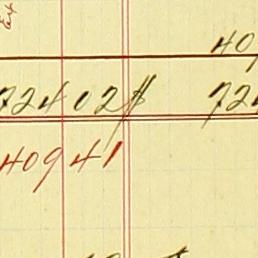 40
72402 72
40941